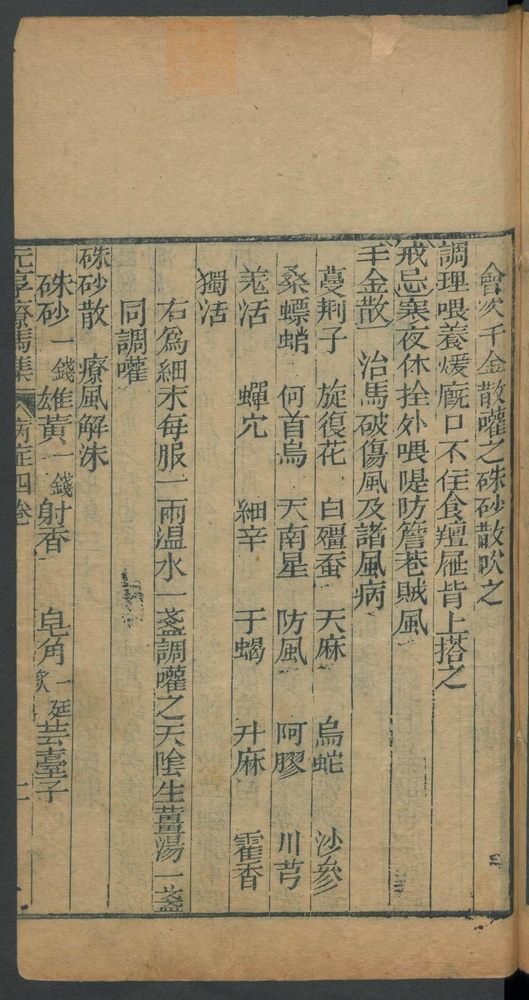 會次千金散嚾之硃砂散吹之
調理喂養煖廐口不住食氊屉背上搭之
戒忌寒夜休拴外喂隄防簷巷賊風
千金散 治馬破傷風及諸風病
蔓荆子 旋復花 白殭蚕 天麻 烏蛇 沙參
桑螵蛸 何首烏 天南星 防風 阿膠 川芎
羗活 蟬穴 細辛 于蝎 升麻 霍香
獨活
右爲細末每服一兩温水一盞調嚾之天陰生薑湯一盞
同調嚾
硃砂散 療風解涑
硃砂一錢 雄黃一錢 射香 皂角一廷 芸薹子
元亨療馬集 病症四卷 二